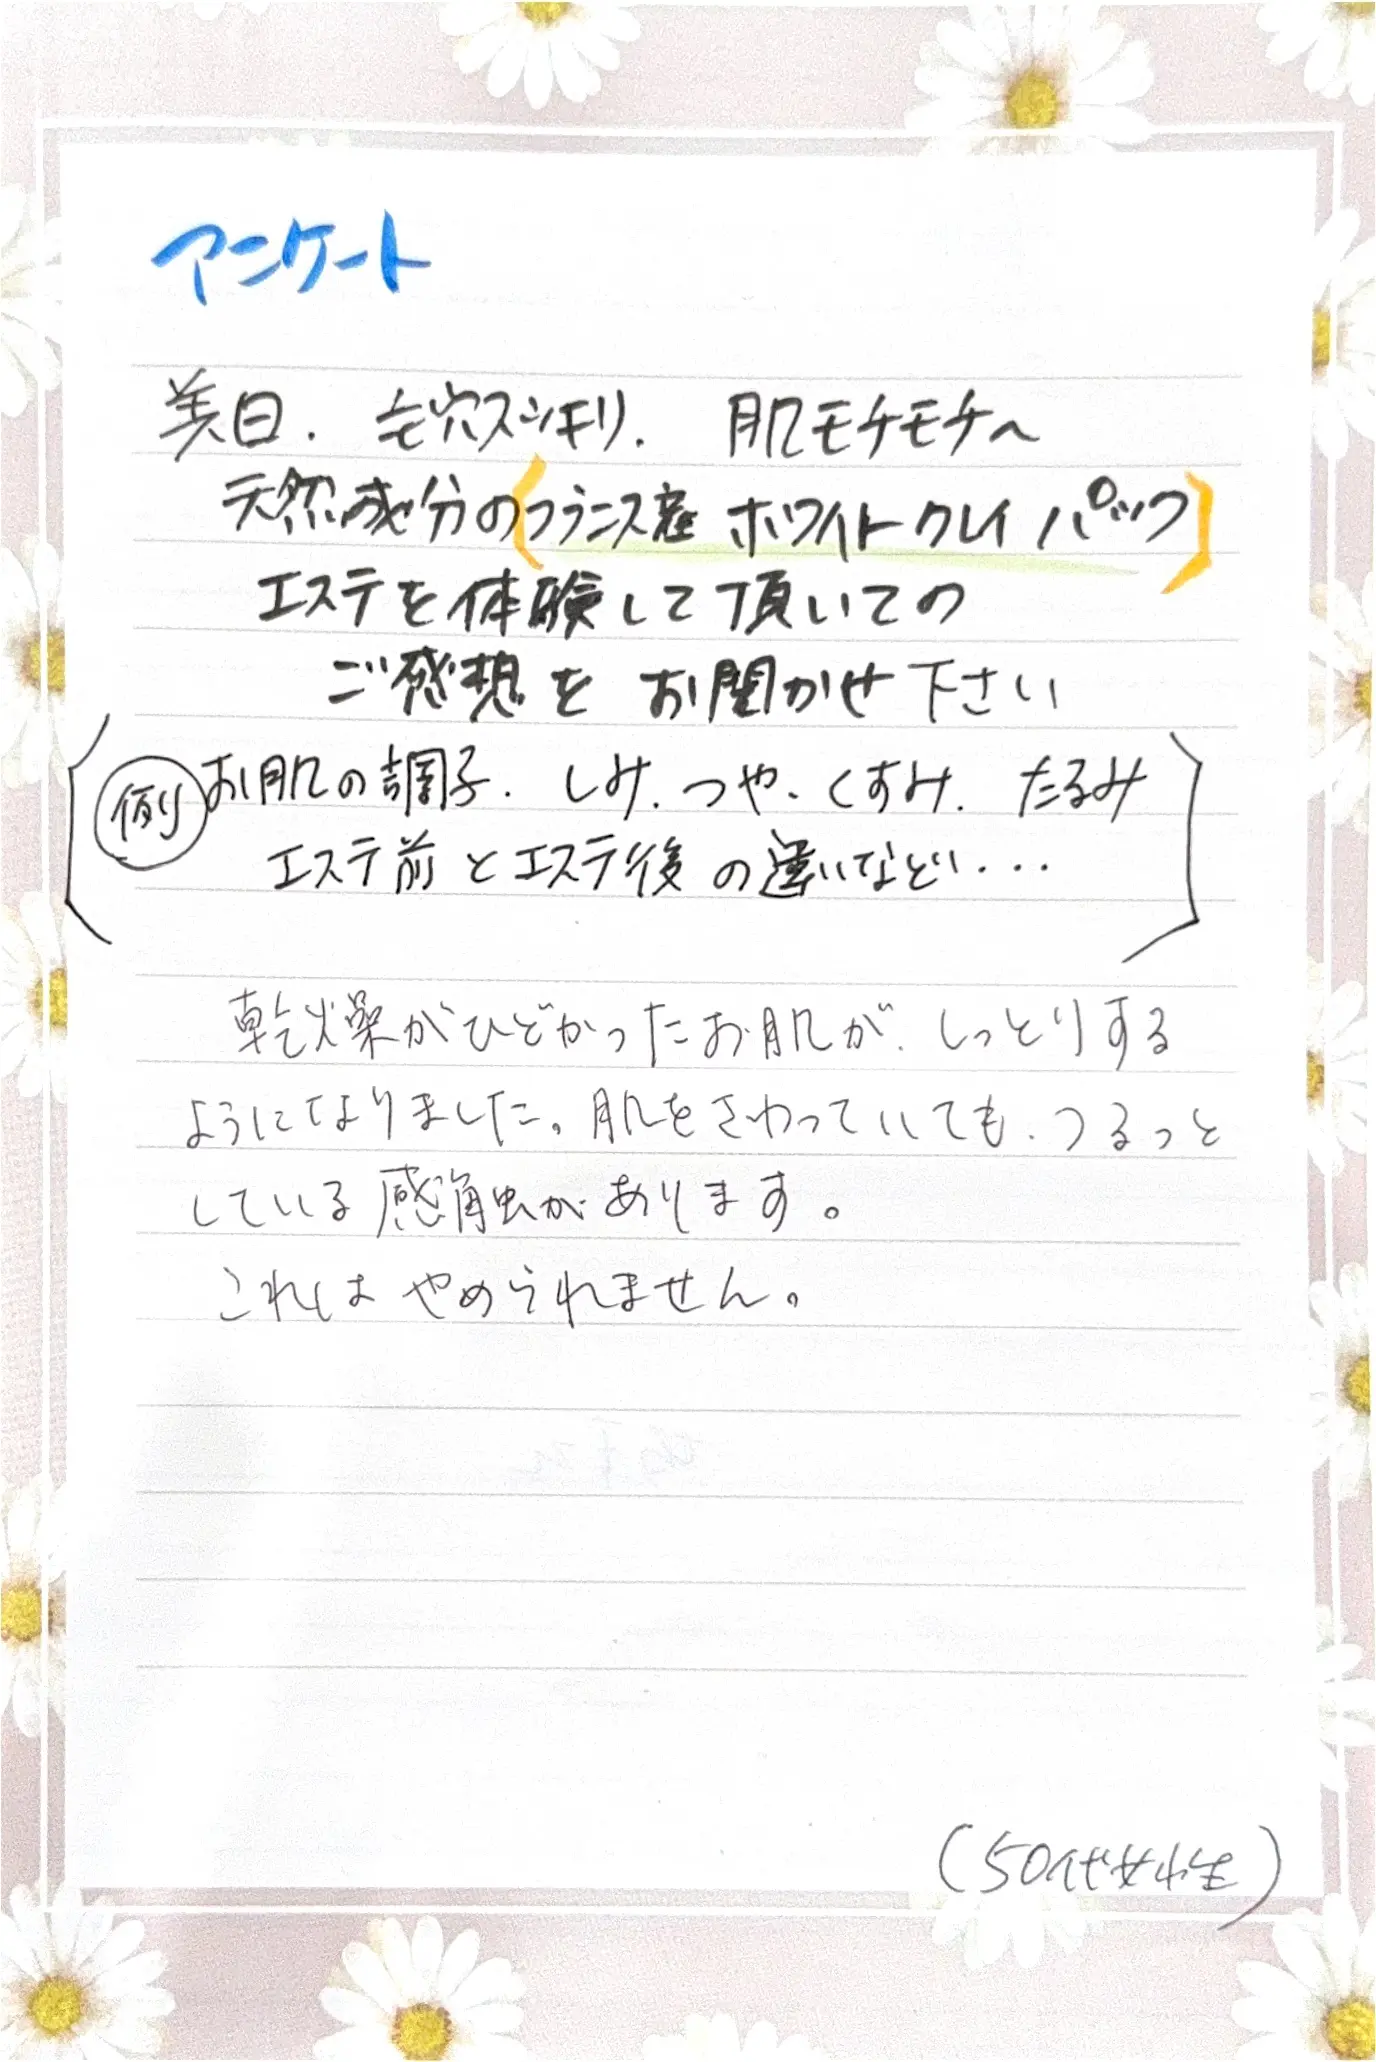 アンケート
美白. 毛穴スッキリ. 肌モチモチへ
天然成分の(フランス産 ホワイトクレイ パック)
エステを体験して頂いての
ご感想を お聞かせ下さい
(例)お肌の調子. しみ. つや. くすみ. たるみ
エステ前とエステ後の違いなどい...
乾燥がひどかったお肌が、しっとりする
ようになりました。肌をさわっていても、つるっと
している感触があります。
これは やめられません。
(50代女性)